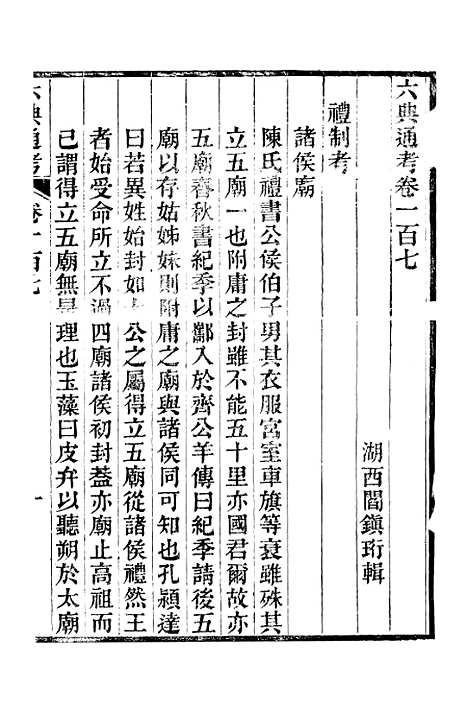 六典通考卷一百七
湖西閻鎭珩輯
禮制考
諸侯廟
陳氏禮書公侯伯子男其衣服宮室車旗等衰雖殊其
立五廟一也附庸之封雖不能五十里亦國君爾故亦
五廟春秋書紀季以酅入於齊公羊傳曰紀季請後五
廟以存姑姊妹則附庸之廟與諸侯同可知也孔穎達
曰若異姓始封如公之屬得立五廟從諸侯禮然王
者始受命所立不過四廟諸侯初封蓋亦廟止高祖而
已謂得立五廟無是理也玉藻曰皮弁以聽朔於太廟
六典通考
卷一百七
一